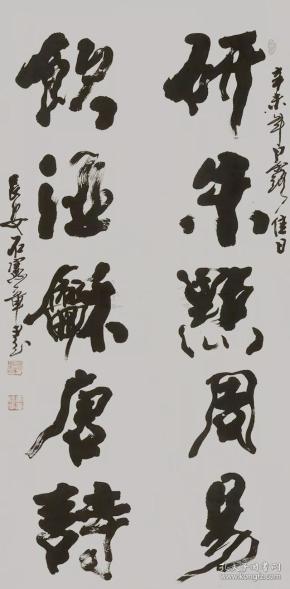 辛未年白露佳日
研朱點周易
飲酒龢唐詩
長安石憲章書
孔夫子旧书网